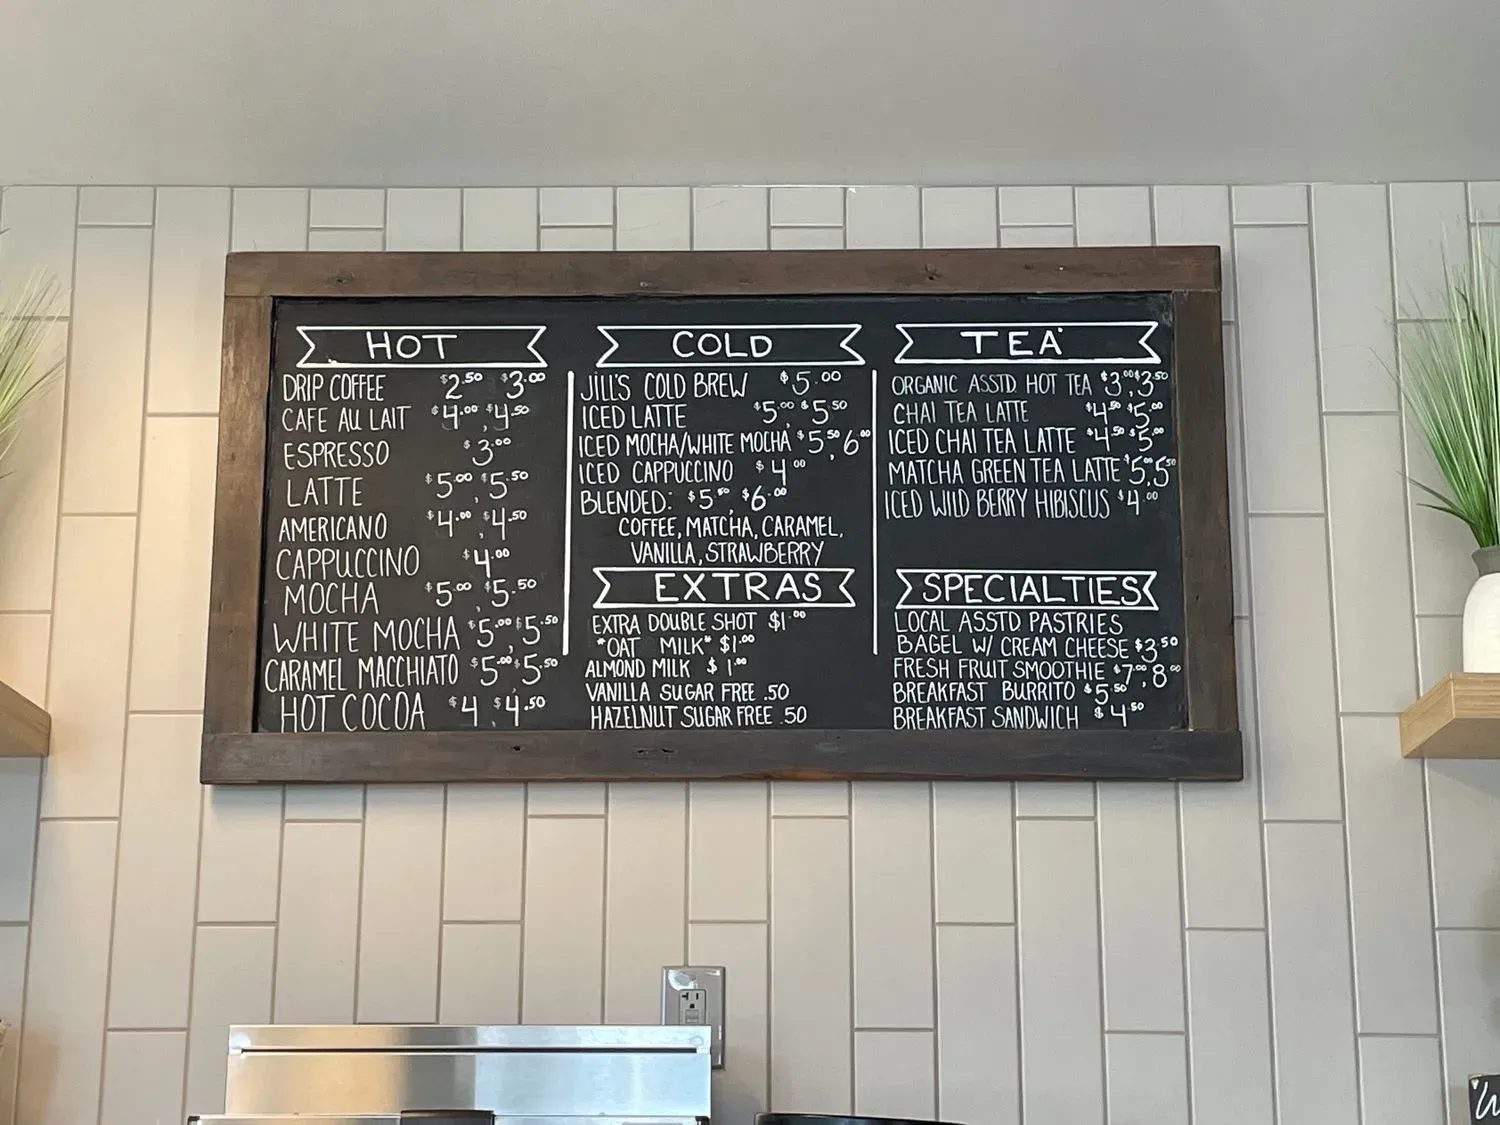 HOT
DRIP COFFEE $2.50 $3.00
CAFE AU LAIT $4.00, $4.50
ESPRESSO $3.00
LATTE $5.00, $5.50
AMERICANO $4.00, $4.50
CAPPUCCINO $4.00
MOCHA $5.00, $5.50
WHITE MOCHA $5.00, $5.50
CARAMEL MACCHIATO $5.00, $5.50
HOT COCOA $4, $4.50
COLD
JILL'S COLD BREW $5.00
ICED LATTE $5.00, $5.50
ICED MOCHA/WHITE MOCHA $5.50, 6.00
ICED CAPPUCCINO $4.00
BLENDED: $5.50, $6.00
COFFEE, MATCHA, CARAMEL,
VANILLA, STRAWBERRY
EXTRAS
EXTRA DOUBLE SHOT $1.00
*OAT MILK* $1.00
ALMOND MILK $1.00
VANILLA SUGAR FREE .50
HAZELNUT SUGAR FREE .50
TEA
ORGANIC ASSTD HOT TEA $3.00, $3.50
CHAI TEA LATTE $4.50, $5.00
ICED CHAI TEA LATTE $4.50, $5.00
MATCHA GREEN TEA LATTE $5.00, 5.50
ICED WILD BERRY HIBISCUS $4.00
SPECIALTIES
LOCAL ASSTD PASTRIES
BAGEL W/ CREAM CHEESE $3.50
FRESH FRUIT SMOOTHIE $7.00, 8.00
BREAKFAST BURRITO $5.50
BREAKFAST SANDWICH $4.50